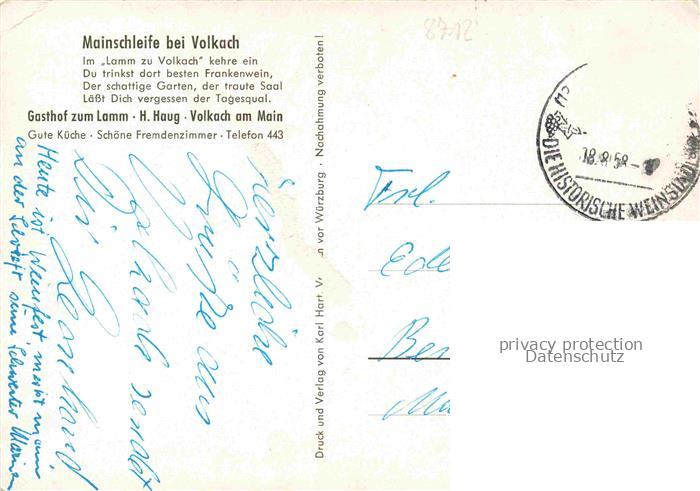 8712
Mainschleife bei Volkach
Im „Lamm zu Volkach" kehre ein
Du trinkst dort besten Frankenwein,
Der schattige Garten, der traute Saal
Läßt Dich vergessen der Tagesqual.
Gasthof zum Lamm · H. Haug · Volkach am Main
Gute Küche · Schöne Fremdenzimmer · Telefon 443
Herzliche
Grüße aus
Volkach sendet
Dir
Heute ist Weinfest, merkt man
an der Schrift
Druck und Verlag von Karl Hart V n vor Würzburg · Nachahmung verboten!
18.8.58-
DIE HISTORISCHE WEINSTADT
Frl.
privacy protection
Datenschutz